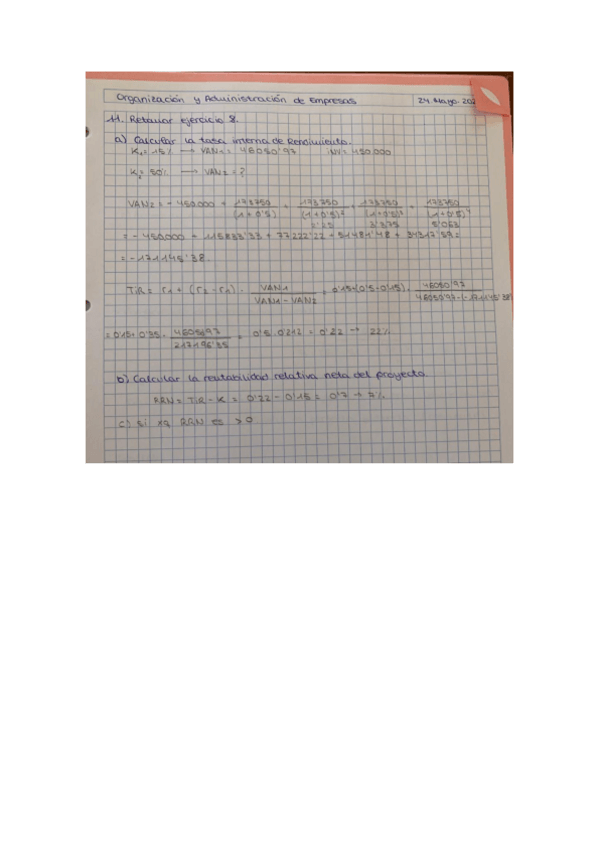 Organización y Administración de Empresas 24. Mayo. 202
11. Retomar ejercicio 8.
a) Calcular la tasa interna de Rendimiento.
K₁= 15% → VAN₁= 46050'97 INV= 450.000
K₂= 50% → VAN₂ = ?
VAN₂ = - 450.000 + 173750/(1+0'5) + 173750/(1+0'5)² + 173750/(1+0'5)³ + 173750/(1+0'5)⁴
2'25 3'375 5'063
= - 450.000 + 115833'33 + 77222'22 + 51481'48 + 34317'59 =
= - 171145'38.
TiR = r₁ + (r₂ - r₁) · VAN₁/(VAN₁ - VAN₂) = 0'15+(0'5-0'15) · 46050'97/(46050'97-(-171145'38)
= 0'15 + 0'35 · 46050'97/217196'35 = 0'5 · 0'212 = 0'22 → 22%
b) Calcular la rentabilidad relativa neta del proyecto
RRN = TiR - K = 0'22 - 0'15 = 0'7 → 7%
c) Si xq RRN es > 0